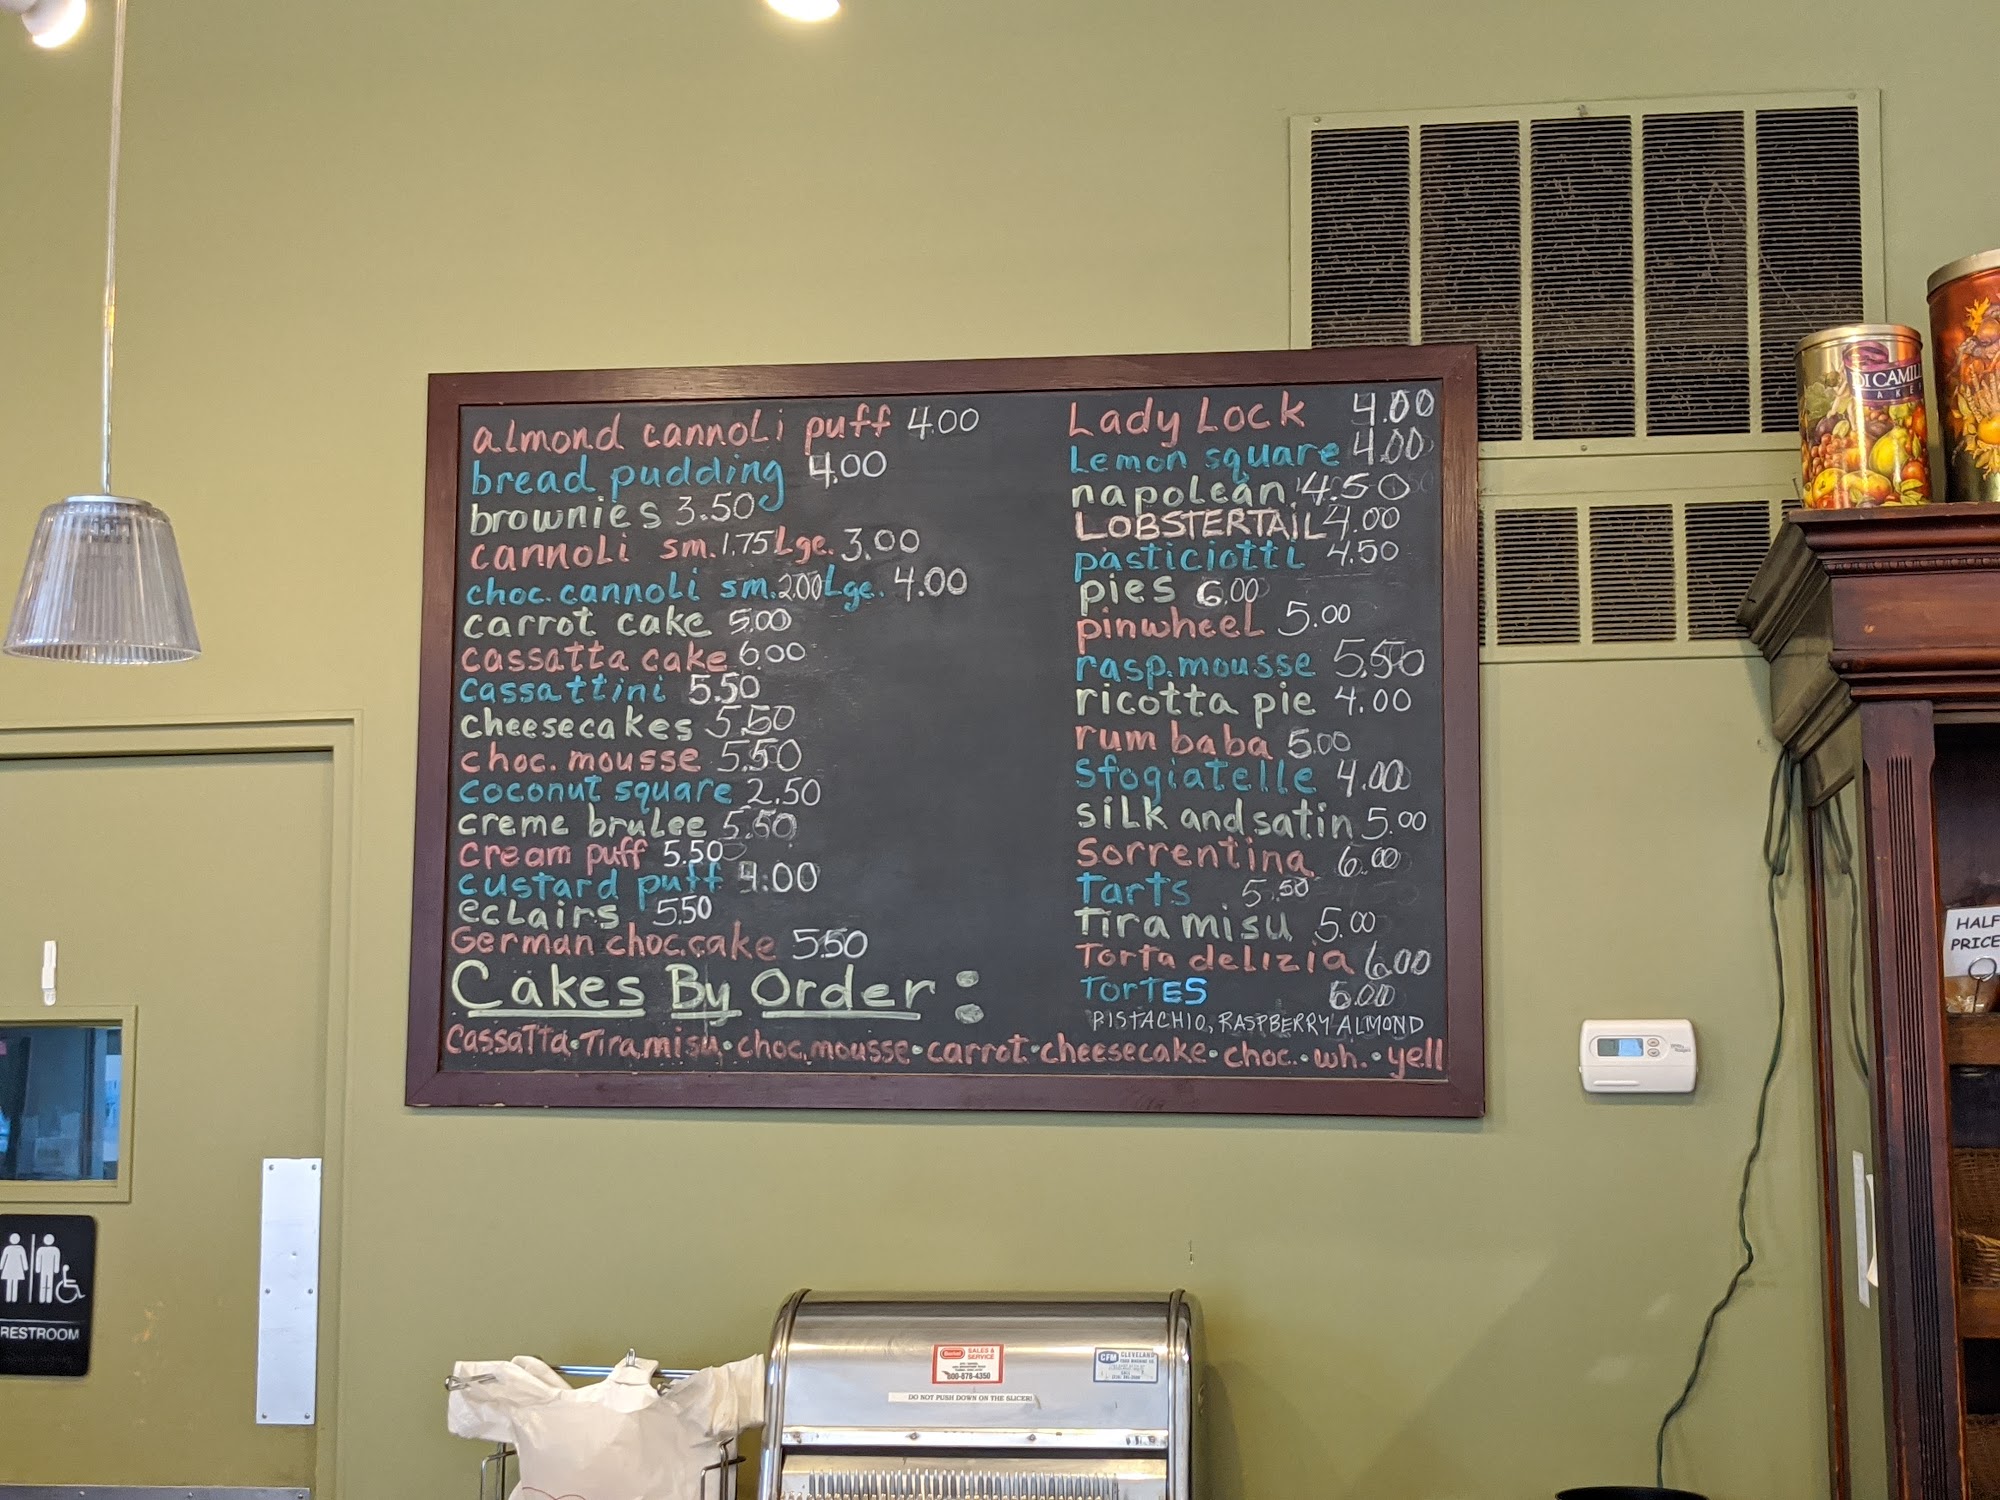 almond cannoli puff 4.00
bread pudding 4.00
brownies 3.50
cannoli sm. 1.75 Lge. 3.00
choc. cannoli sm. 2.00 Lge. 4.00
carrot cake 5.00
cassatta cake 6.00
cassattini 5.50
cheesecakes 5.50
choc. mousse 5.50
coconut square 2.50
creme brulee 5.50
cream puff 5.50
custard puff 4.00
eclairs 5.50
German choc. cake 5.50
Lady Lock 4.00
Lemon square 4.00
napolean 4.50
LOBSTERTAIL 4.00
pasticiotti 4.50
pies 6.00
pinwheel 5.00
rasp. mousse 5.50
ricotta pie 4.00
rum baba 5.00
Sfogiatelle 4.00
silk and satin 5.00
Sorrentina 6.00
Tarts 5.50
Tiramisu 5.00
Torta delizia 6.00
TORTES 6.00
PISTACHIO, RASPBERRY ALMOND
Cakes By Order:
Cassatta • Tiramisu • choc. mousse • carrot • cheesecake • choc. • wh. • yell
DI CAMIL
HALF
PRICE
RESTROOM
SALES &
SERVICE
800-878-4350
DO NOT PUSH DOWN ON THE SLICER!
CFM CLEVELAND